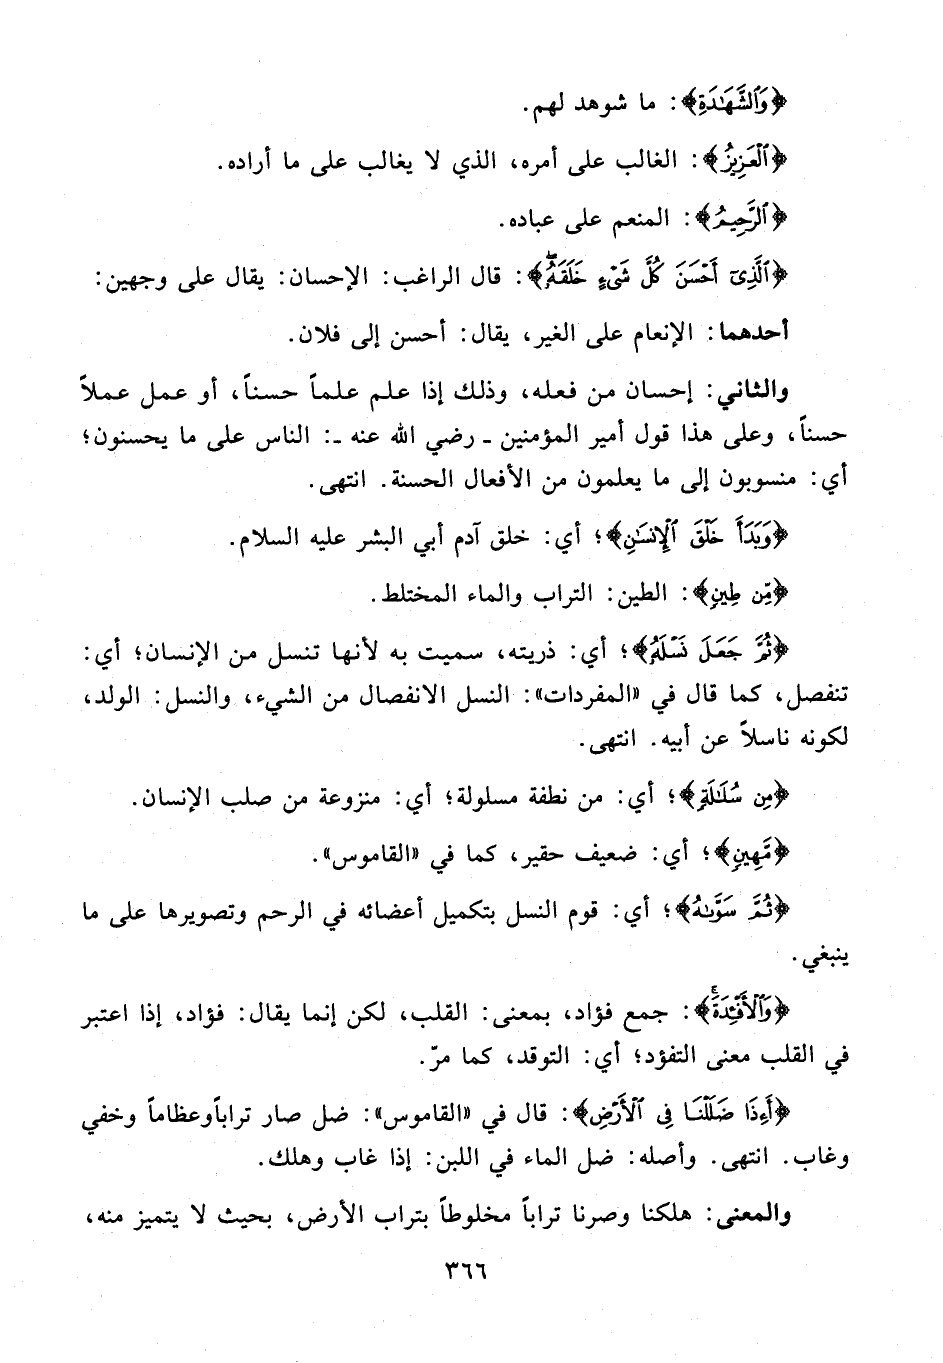 ﴿وَٱلشَّهَـٰدَةِ﴾: ما شوهد لهم.
﴿ٱلْعَزِيزُ﴾: الغالب على أمره، الذي لا يغالب على ما أراده.
﴿ٱلرَّحِيمُ﴾: المنعم على عباده.
﴿ٱلَّذِىٓ أَحْسَنَ كُلَّ شَىْءٍ خَلَقَهُۥۖ﴾: قال الراغب: الإحسان: يقال على وجهين:
أحدهما: الإنعام على الغير، يقال: أحسن إلى فلان.
والثاني: إحسان من فعله، وذلك إذا علم علماً حسناً، أو عمل عملاً
حسناً، وعلى هذا قول أمير المؤمنين ـ رضي الله عنه ـ: الناس على ما يحسنون؛
أي: منسوبون إلى ما يعلمون من الأفعال الحسنة. انتهى.
﴿وَبَدَأَ خَلْقَ ٱلْإِنسَـٰنِ﴾؛ أي: خلق آدم أبي البشر عليه السلام.
﴿مِّن طِينٍ﴾: الطين: التراب والماء المختلط.
﴿ثُمَّ جَعَلَ نَسْلَهُۥ﴾؛ أي: ذريته، سميت به لأنها تنسل من الإنسان؛ أي:
تنفصل، كما قال في «المفردات»: النسل الانفصال من الشيء، والنسل: الولد،
لكونه ناسلاً عن أبيه. انتهى.
﴿مِن سُلَـٰلَةٍ﴾؛ أي: من نطفة مسلولة؛ أي: منزوعة من صلب الإنسان.
﴿مَّهِينٍ﴾؛ أي: ضعيف حقير، كما في «القاموس».
﴿ثُمَّ سَوَّىٰهُ﴾؛ أي: قوم النسل بتكميل أعضائه في الرحم وتصويرها على ما
ينبغي.
﴿وَٱلْأَفْـِٔدَةَۚ﴾: جمع فؤاد، بمعنى: القلب، لكن إنما يقال: فؤاد، إذا اعتبر
في القلب معنى التفؤد؛ أي: التوقد، كما مرّ.
﴿أَءِذَا ضَلَلْنَا فِى ٱلْأَرْضِ﴾: قال في «القاموس»: ضل صار تراباًوعظاماً وخفي
وغاب. انتهى. وأصله: ضل الماء في اللبن: إذا غاب وهلك.
والمعنى: هلكنا وصرنا تراباً مخلوطاً بتراب الأرض، بحيث لا يتميز منه،
٣٦٦